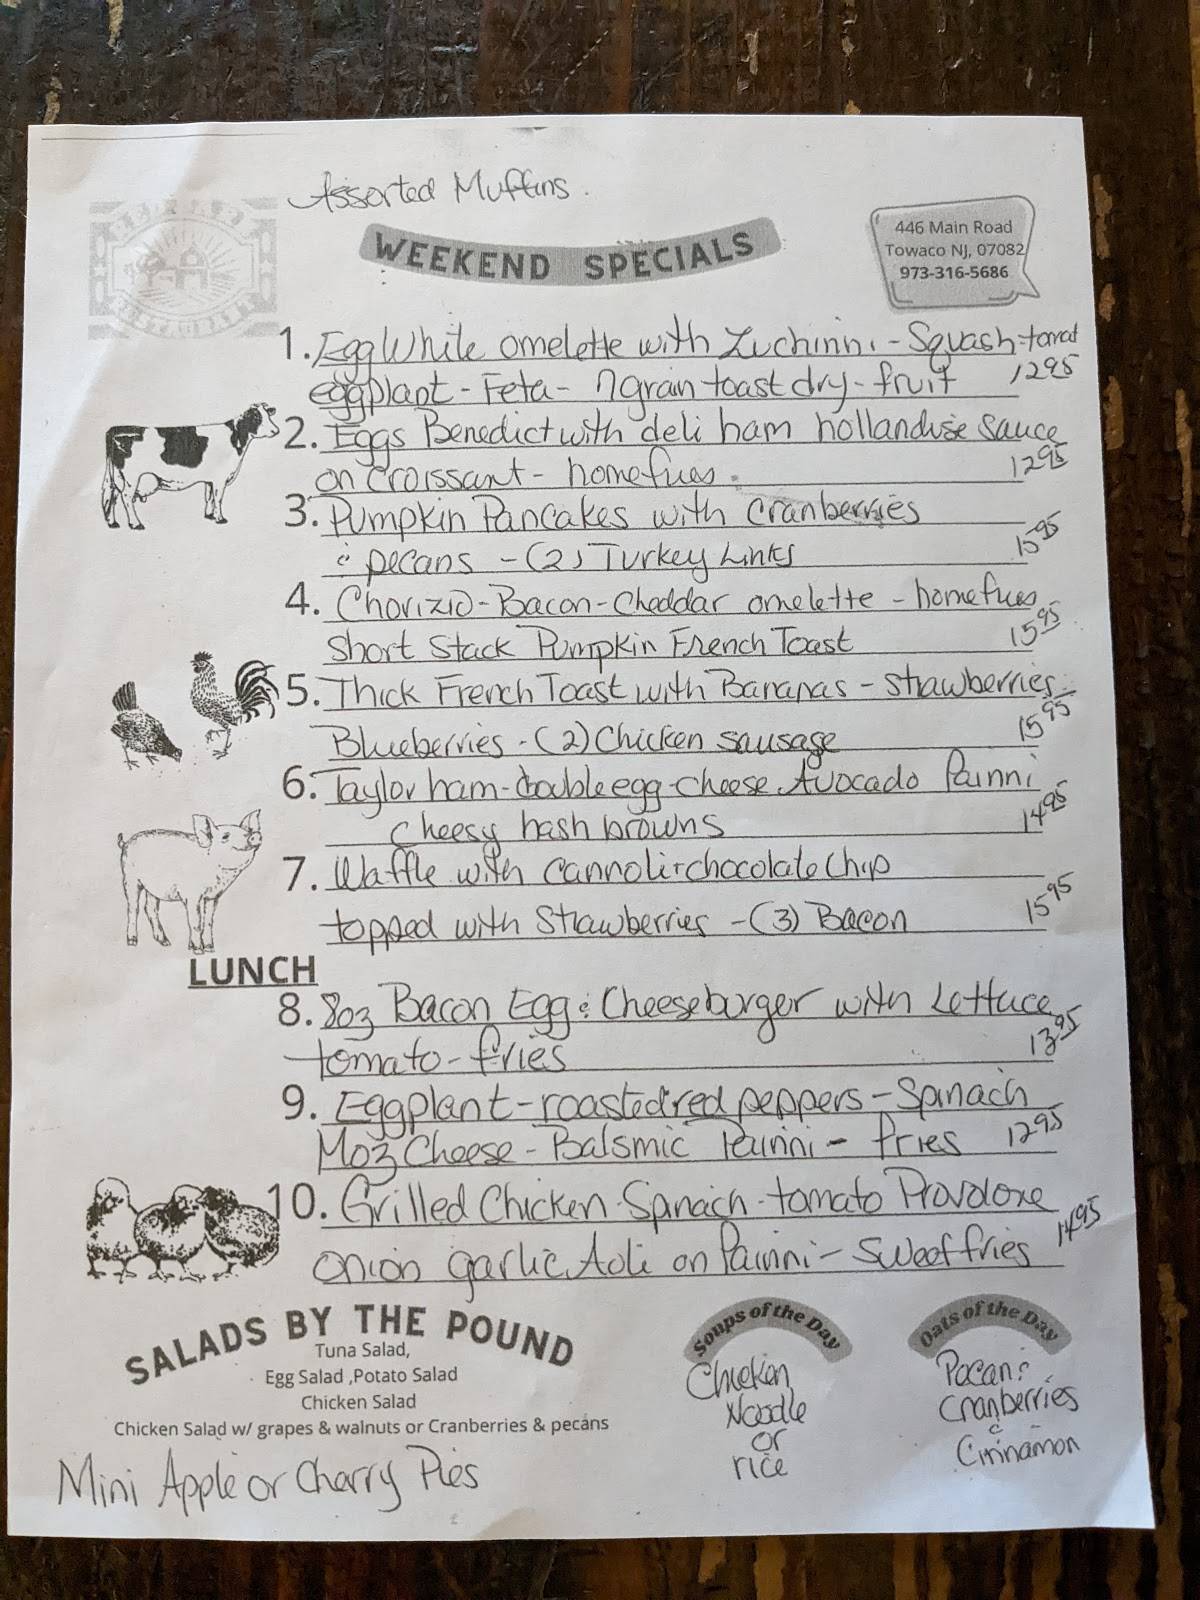 Assorted Muffins.
RED BARN
RESTAURANT
WEEKEND SPECIALS
446 Main Road
Towaco NJ, 07082
973-316-5686
1. Egg White omelette with Zuchinni - Squash - tomat
eggplant - Feta - 7grain toast dry - fruit 12 95
2. Eggs Benedict with deli ham hollandise sauce
on croissant - homefries. 12 95
3. Pumpkin Pancakes with cranberries
& pecans - (2) Turkey Links 15 95
4. Chorizio - Bacon - Cheddar omelette - homefries
Short Stack Pumpkin French Toast 15 95
5. Thick French Toast with Bananas - Strawberries
Blueberries - (2) Chicken sausage 15 95
6. Taylor ham - double egg - cheese Avocado Painni
cheesy hash browns 14 95
7. Waffle with cannoli + chocolate chip
topped with Strawberries - (3) Bacon 15 95
LUNCH
8. 8oz Bacon Egg & Cheeseburger with Lettuce
tomato - fries 13 95
9. Eggplant - roasted red peppers - Spinach
Moz Cheese - Balsmic Painni - fries 12 95
10. Grilled Chicken - Spinach - tomato Provolone
onion garlic Aoli on Painni - Sweet fries 14 95
SALADS BY THE POUND
Tuna Salad,
Egg Salad ,Potato Salad
Chicken Salad
Chicken Salad w/ grapes & walnuts or Cranberries & pecans
Mini Apple or Cherry Pies
Soups of the Day
Chicken
Noodle
or
rice
Oats of the Day
Pecan &
Cranberries
&
Cinnamon